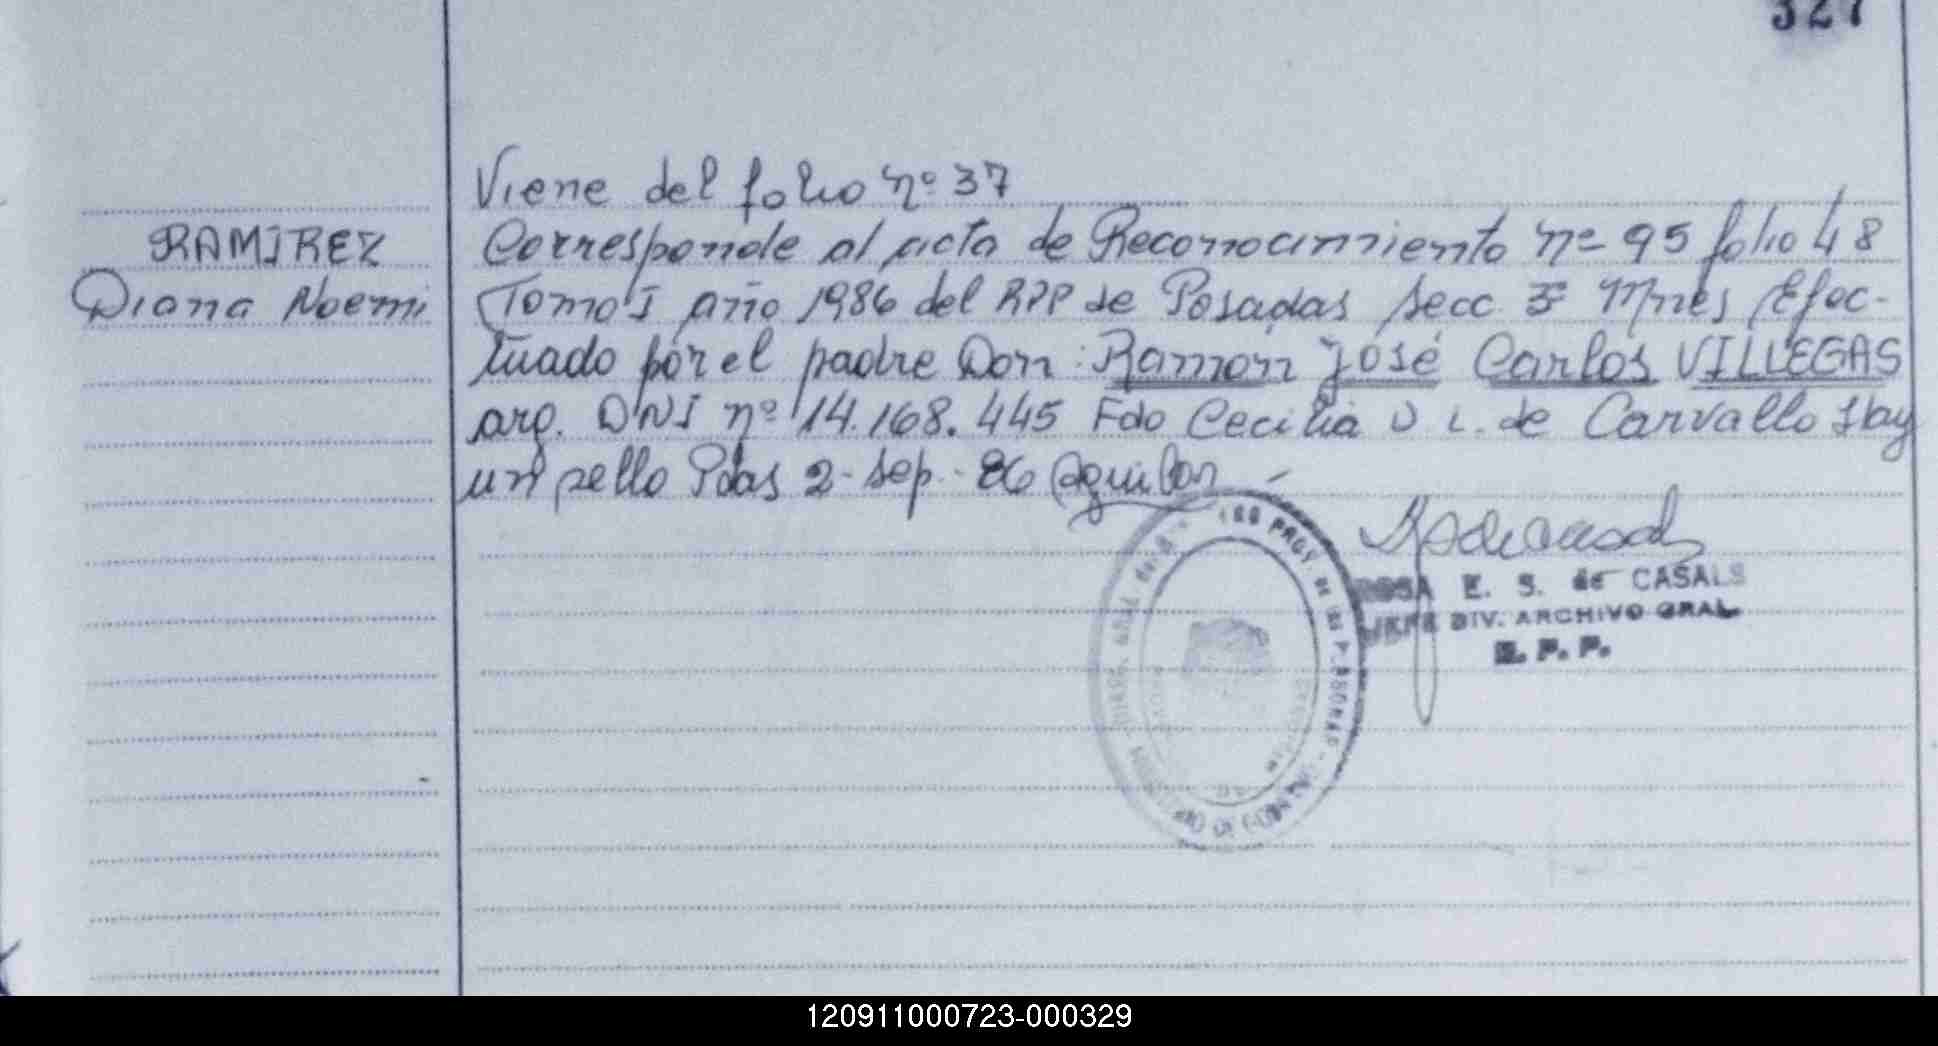 327
Viene del folio nº 37
RAMIREZ
Diana Noemi
Corresponde al acta de Reconocimiento nº 95 folio 48
Tomo I año 1986 del RPP de Posadas Secc 3ª Mnes Efec-
tuado por el padre Don: Ramon José Carlos VILLEGAS
arg. DNI nº 14.168.445 Fdo Cecilia D L. de Carvallo Hay
un sello Pdas 2-sep.-86 Aguilar
ROSA E. S. de CASALS
JEFE DIV. ARCHIVO GRAL
R. P. P.
PROV. DE LAS PERSONAS
120911000723-000329